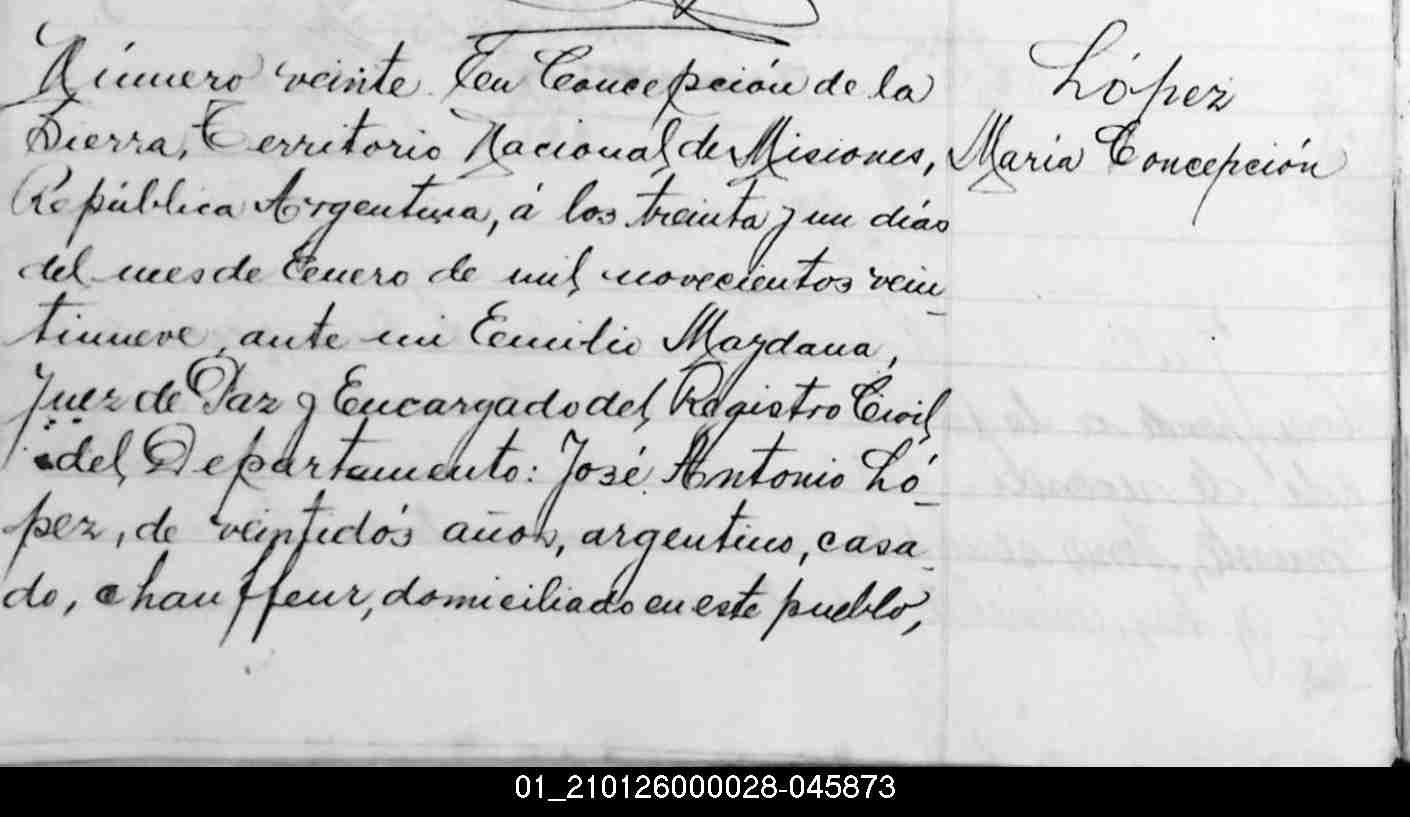 Número veinte. En Concepción de la
Sierra, Territorio Nacional de Misiones,
República Argentina, á los treinta y un días
del mes de Enero de mil novecientos vein_
tinueve, ante mi Emilio Maydana,
Juez de Paz y Encargado del Registro Civil
del Departamento: José Antonio Ló_
pez, de veintidós años, argentino, casa_
do, chauffeur, domiciliado en este pueblo,
López
María Concepción
01_210126000028-045873